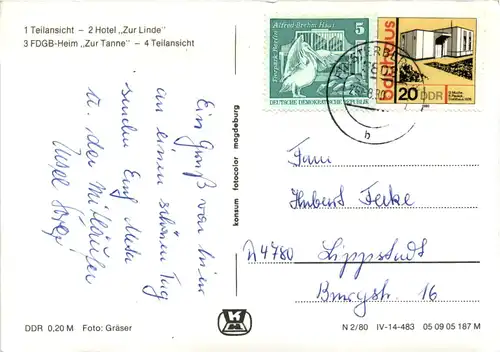 1 Teilansicht - 2 Hotel „Zur Linde"
3 FDGB-Heim „Zur Tanne" - 4 Teilansicht
Ein Gruß von hier
an einem schönen Tag
senden Eug Meta
u. der Mitläufer
konsum fotocolor magdeburg
Alfred Brehm Haus
Tierpark Berlin
5
DEUTSCHE DEMOKRATISCHE REPUBLIK
bauhaus
20 DDR
h
Hubert
D 4780 Lippstadt
Burgstr. 16
K
DDR 0,20 M Foto: Gräser
N 2/80 IV-14-483 05 09 05 187 M